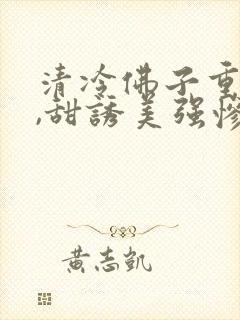 清冷佛子重
,甜誘美强慘
黃志凱